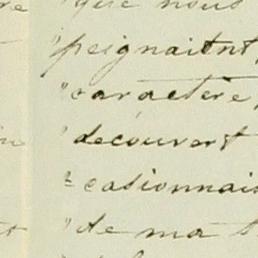 "que nous
"peignaient,
"caractère,
"découvert
"casionnais
"de ma